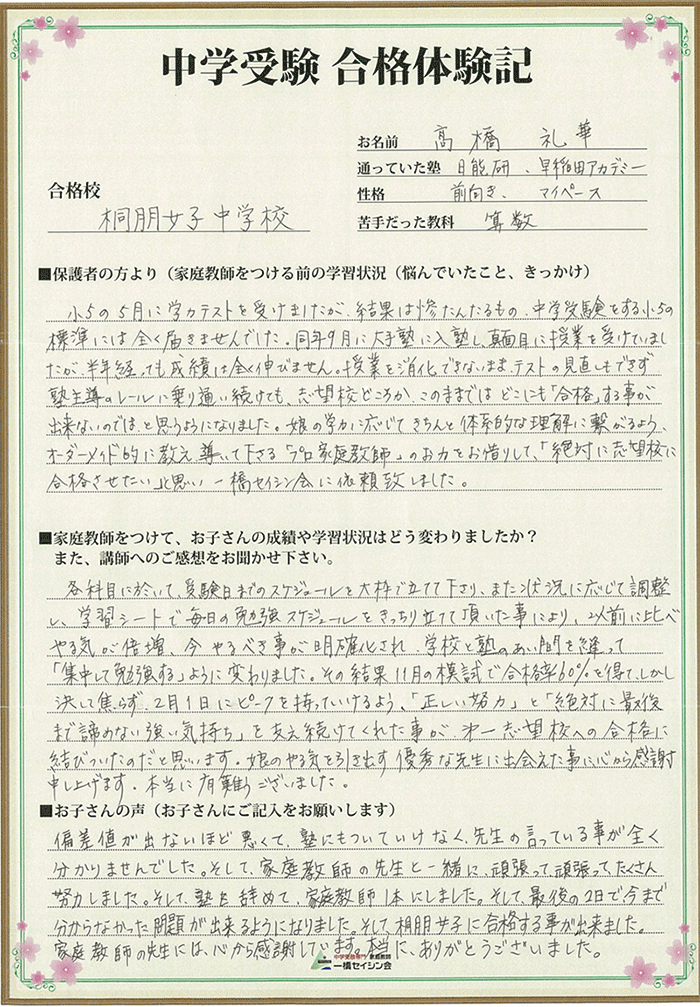 中学受験 合格体験記
お名前 高橋 礼華
通っていた塾 日能研、早稲田アカデミー
合格校
性格 前向き、マイペース
桐朋女子中学校
苦手だった教科 算数
■保護者の方より（家庭教師をつける前の学習状況（悩んでいたこと、きっかけ）
小5の5月に学力テストを受けましたが、結果は惨たんたるもの、中学受験をする小5の
標準には全く届きませんでした。同年9月に大手塾に入塾し、真面目に授業を受けていまし
たが、半年経っても成績は全く伸びません。授業を消化できないまま、テストの見直しもできず
塾主導のレールに乗り通い続けても、志望校どころか、このままではどこにも「合格」する事が
出来ないのでは、と思うようになりました。娘の学力に応じてきちんと体系的な理解に繋がるよう、
オーダーメイド的に教え導いて下さる「プロ家庭教師」のお力をお借りして、「絶対に志望校に
合格させたい」と思い一橋セイシン会に依頼致しました。
■家庭教師をつけて、お子さんの成績や学習状況はどう変わりましたか？
また、講師へのご感想をお聞かせ下さい。
各科目に於いて、受験日までのスケジュールを大枠で立てて下さり、また状況に応じて調整
し、学習シートで毎日の勉強スケジュールをきっちり立てて頂いた事により、以前に比べ
やる気が倍増、今やるべき事が明確化され、学校と塾のあい間を縫って
「集中して勉強する」ように変わりました。その結果11月の模試で合格率60%を得て、しかし
決して焦らず、2月1日にピークを持っていけるよう、「正しい努力」と「絶対に最後
まで諦めない強い気持ち」を支え続けてくれた事が、第一志望校への合格に
結びついたのだと思います。娘のやる気を引き出す優秀な先生に出会えた事に心から感謝
申し上げます。本当に有難うございました。
■お子さんの声（お子さんにご記入をお願いします）
偏差値が出ないほど悪くて、塾にもついていけなく、先生の言っている事が全く
分かりませんでした。そして、家庭教師の先生と一緒に、頑張って、頑張って、たくさん
努力しました。そして、塾を辞めて、家庭教師1本にしました。そして、最後の2日で今まで
分からなかった問題が出来るようになりました。そして、桐朋女子に合格する事が出来ました。
家庭教師の先生には、心から感謝しています。本当に、ありがとうございました。
中学受験専門 家庭教師
一橋セイシン会